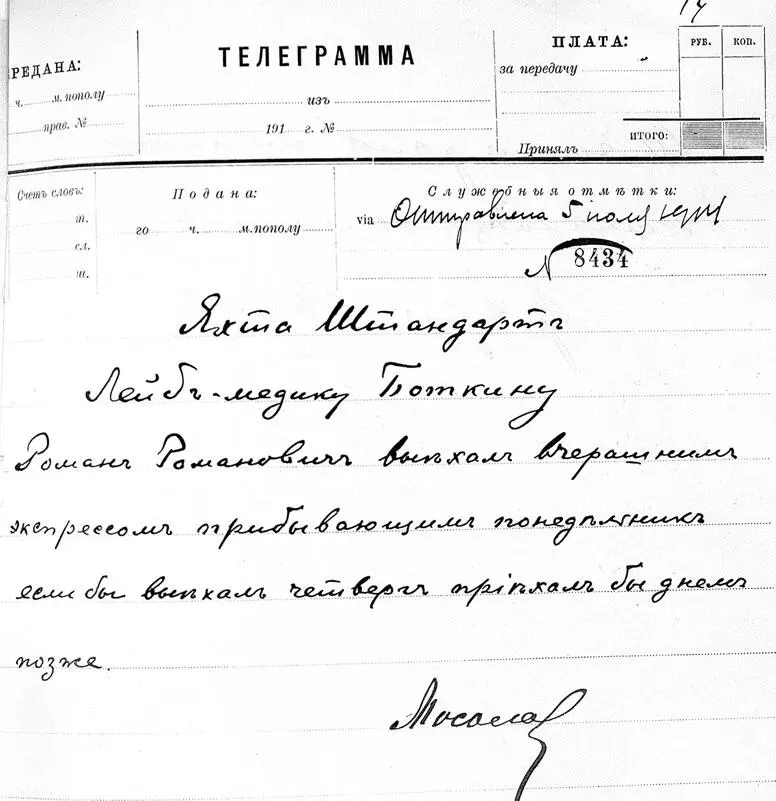 14
ТЕЛЕГРАММА
ПЛАТА:
РУБ. КОП.
РЕДАНА:
за передачу
ч. м. пополу
изъ
прав. №
191 г. №
ИТОГО:
Принялъ
Счетъ словъ:
Подана:
Служебныя отмѣтки:
т.
го ч. м. пополу
via Отправлена 5 июля
сл.
№ 8434
ш.
Яхта Штандартъ
Лейбъ-медику Боткину
Романъ Романовичъ выѣхалъ вчерашнимъ
экспрессомъ прибывающимъ понедѣльникъ
если бы выѣхалъ четвергъ пріѣхалъ бы днемъ
позже.
Мосолов